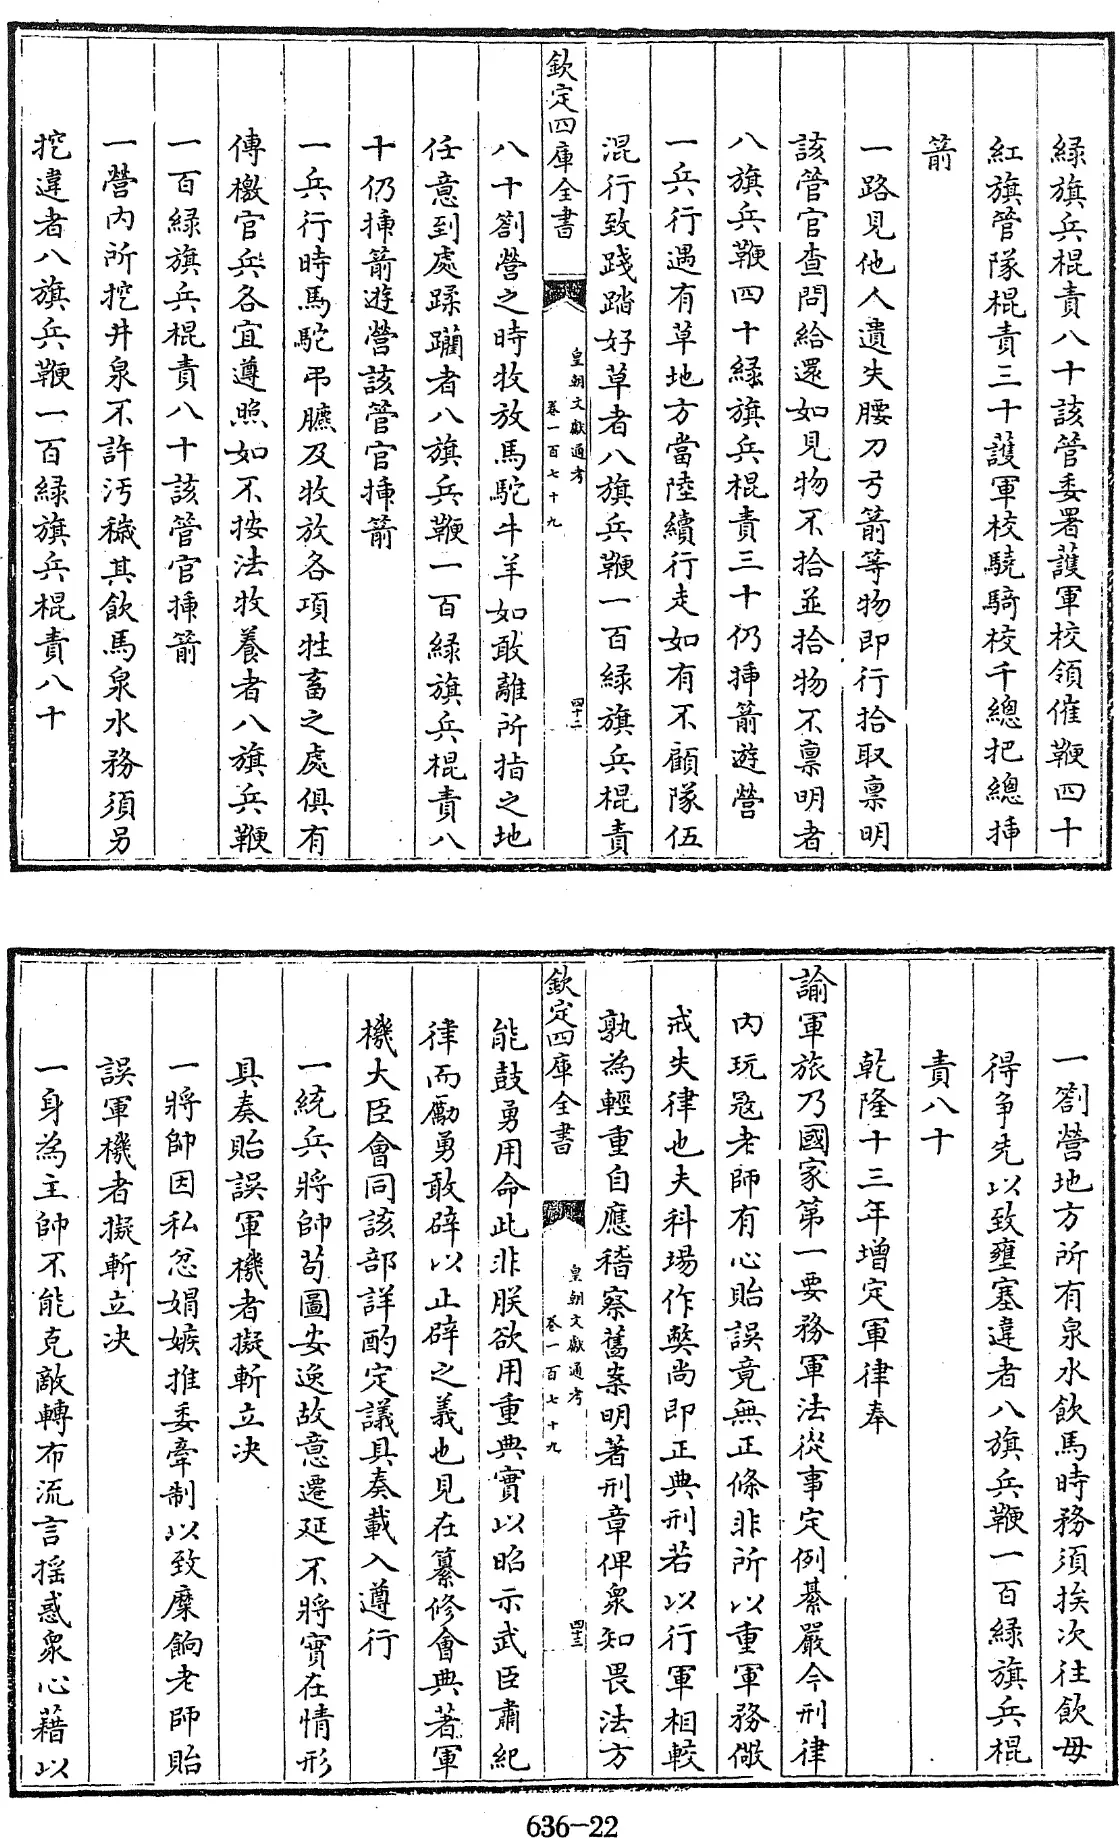 緑旗兵棍責八十該管委署護軍校領催鞭四十
紅旗管隊棍責三十護軍校驍騎校千總把總揷
箭
一路見他人遺失腰刀弓箭等物即行拾取稟明
該管官查問給還如見物不拾並拾物不稟明者
八旗兵鞭四十緑旗兵棍責三十仍揷箭遊營
一兵行遇有草地方當陸續行走如有不顧隊伍
混行致踐踏好草者八旗兵鞭一百緑旗兵棍責
欽定四庫全書
皇朝文獻通考
卷一百七十九
四十二
八十劄營之時牧放馬駝牛羊如敢離所指之地
任意到處蹂躪者八旗兵鞭一百緑旗兵棍責八
十仍揷箭遊營該管官揷箭
一兵行時馬駝弔臕及牧放各項牲畜之處俱有
傳檄官兵各宜遵照如不按法牧養者八旗兵鞭
一百緑旗兵棍責八十該管官揷箭
一營内所挖井泉不許汚穢其飲馬泉水務須另
挖違者八旗兵鞭一百緑旗兵棍責八十
一劄營地方所有泉水飲馬時務須挨次往飲毋
得争先以致壅塞違者八旗兵鞭一百緑旗兵棍
責八十
乾隆十三年增定軍律奉
諭軍旅乃國家第一要務軍法從事定例綦嚴今刑律
内玩寇老師有心貽誤竟無正條非所以重軍務儆
戒失律也夫科場作弊尚即正典刑若以行軍相較
孰為輕重自應稽察舊案明著刑章俾衆知畏法方
欽定四庫全書
皇朝文獻通考
卷一百七十九
四十三
能鼓勇用命此非朕欲用重典實以昭示武臣肅紀
律而勵勇敢辟以止辟之義也見在纂修會典著軍
機大臣會同該部詳酌定議具奏載入遵行
一統兵將帥苟圖安逸故意遷延不將實在情形
具奏貽誤軍機者擬斬立决
一將帥因私忿娟嫉推委牽制以致糜餉老師貽
誤軍機者擬斬立决
一身為主帥不能克敵轉布流言揺惑衆心藉以
636-22